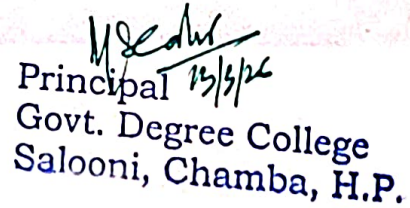 Principal
Govt. Degree College
Salooni, Chamba, H.P.